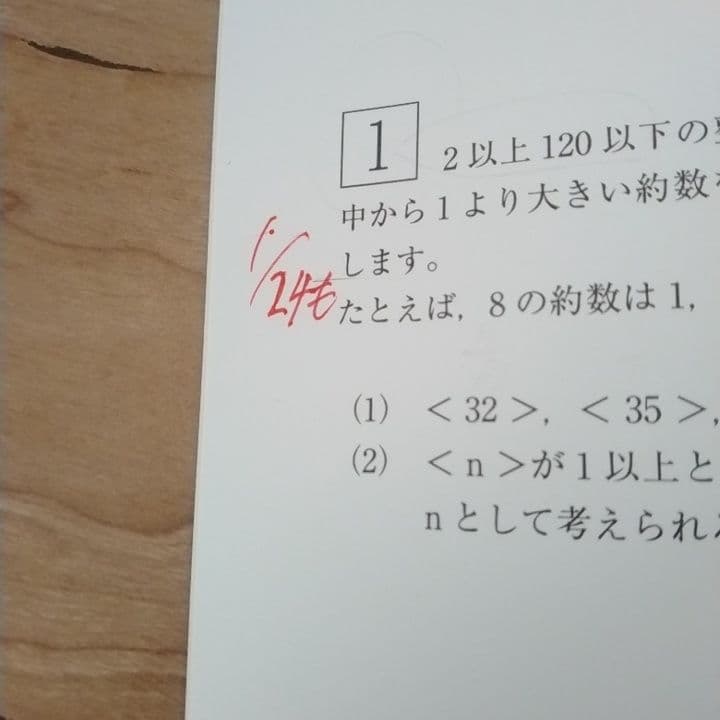 1 2以上120以下の
中から1より大きい約数
します。
1/24も
たとえば, 8の約数は1,
(1) <32>, <35>,
(2) <n>が1以上と
nとして考えられ